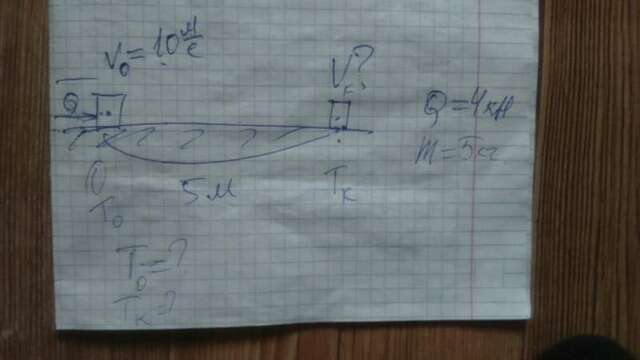 V₀ = 10 м/с
Vк ?
Q
Q = 4 кН
m = 5 кг
5 м
T₀
Tк
T₀ = ?
Tк = ?